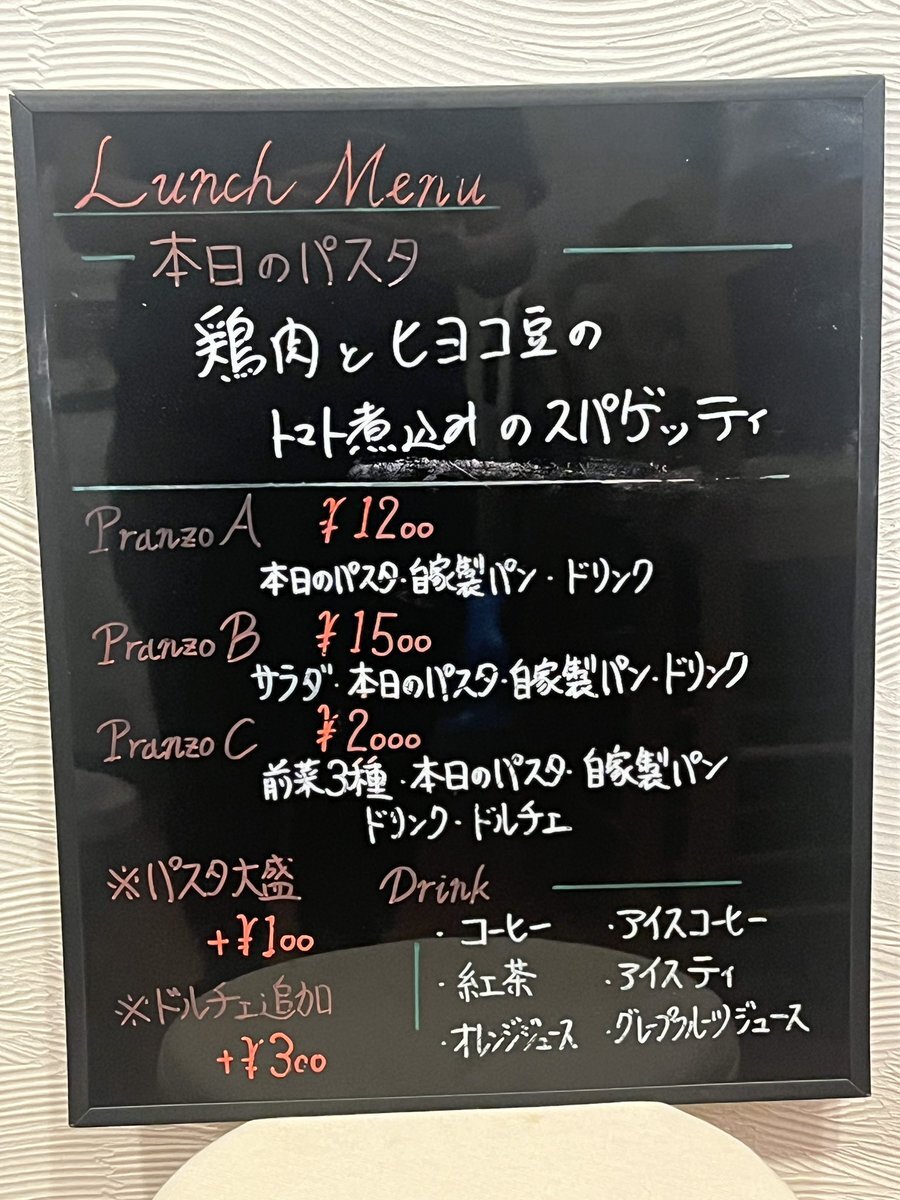 Lunch Menu
本日のパスタ
鶏肉とヒヨコ豆の
トマト煮込みのスパゲッティ
Pranzo A ¥1200
本日のパスタ・自家製パン・ドリンク
Pranzo B ¥1500
サラダ・本日のパスタ・自家製パン・ドリンク
Pranzo C ¥2000
前菜3種・本日のパスタ・自家製パン
ドリンク・ドルチェ
※パスタ大盛
+¥100
※ドルチェ追加
+¥300
Drink
・コーヒー ・アイスコーヒー
・紅茶 ・アイスティ
・オレンジジュース ・グレープフルーツジュース